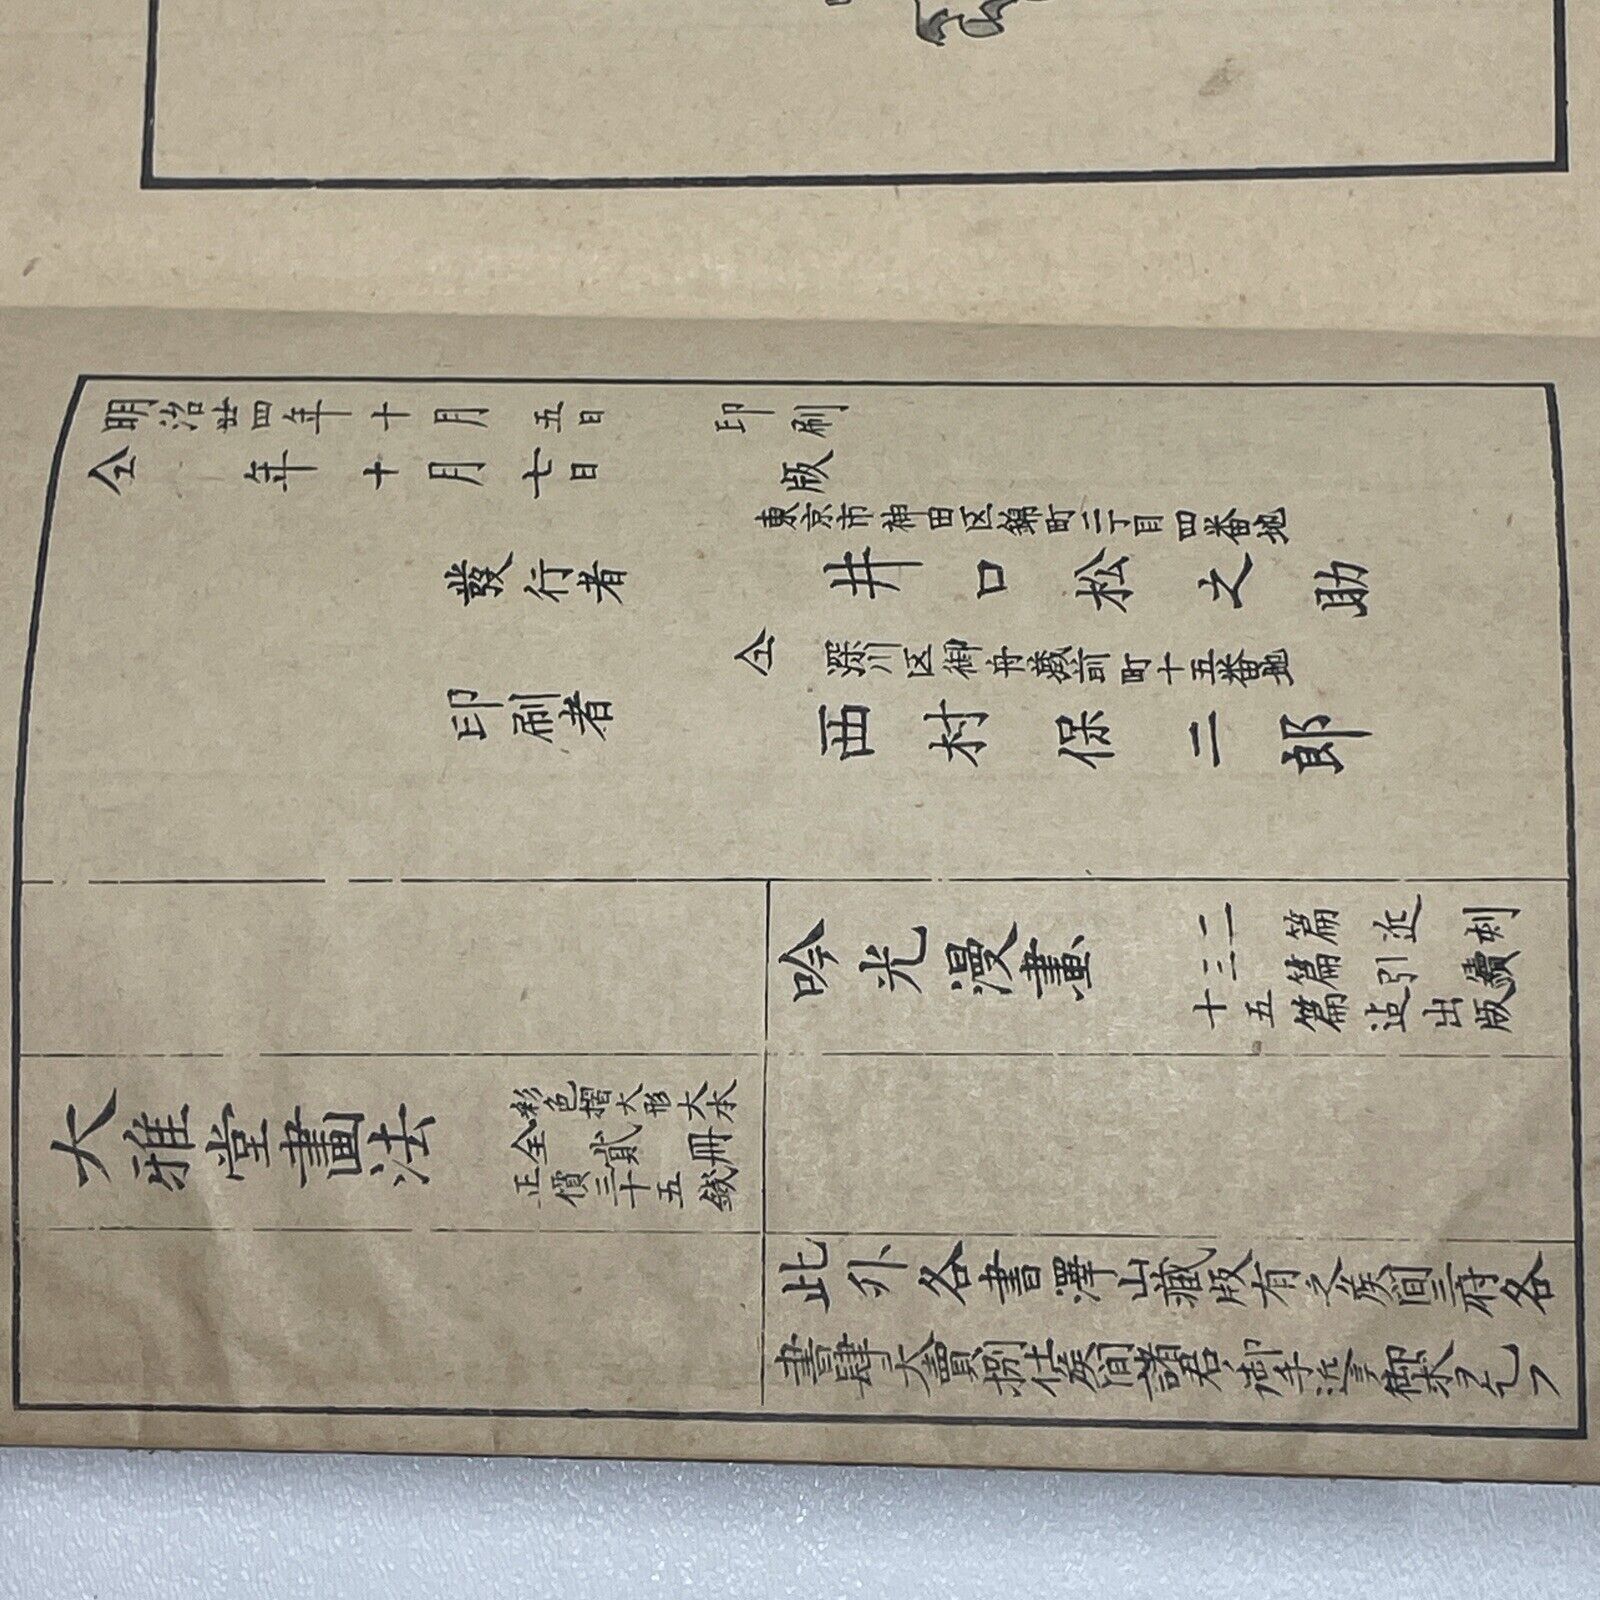 明治廿四年十月五日印刷
仝年十月七日版
東京市神田区錦町二丁目四番地
發行者 井口松之助
仝深川区御舟藏前町十五番地
印刷者 西村保二郎
吟光漫畫
二篇近刻
三篇引續
十五篇迠出版
大雅堂畫法
彩色摺大形大本
全貳冊
正價三十五錢
此外各書澤山藏版有之候間三府各
書肆大賣捌仕候間諸君御手近ニ御求ヲ乞フ